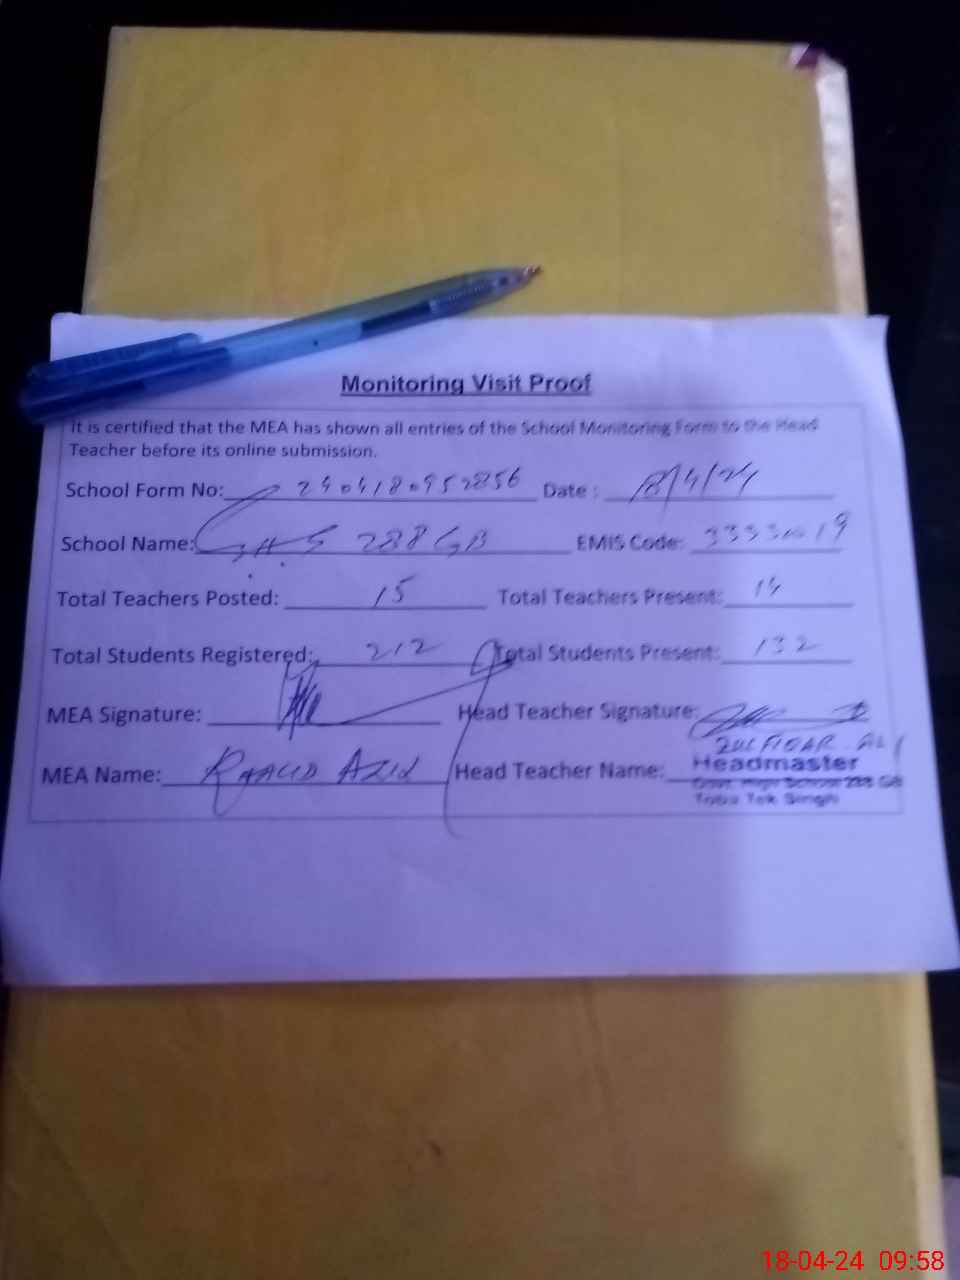 Monitoring Visit Proof
It is certified that the MEA has shown all entries of the School Monitoring Form to the Head
Teacher before its online submission.
School Form No: Date : 18/4/24
School Name: GHS 288 GB EMIS Code:
Total Teachers Posted: 15 Total Teachers Present:
Total Students Registered: 212 Total Students Present: 132
MEA Signature: Head Teacher Signature:
ZULFIQAR ALI
MEA Name: Head Teacher Name: Headmaster
Govt. High School 288 GB
Toba Tek Singh
18-04-24 09:58